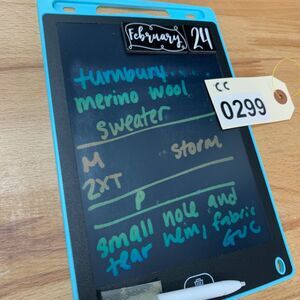 February 24
CC
0299
turnbury....
merino wool
sweater
M storm
2XT
P
small hole and
tear hem, fabric
GUC